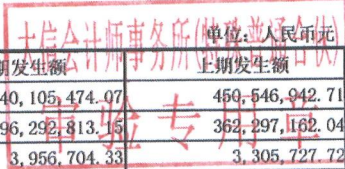 大信会计师事务所(特殊普通合伙)
单位：人民币元
期发生额 上期发生额
40,105,474.07 450,546,942.71
96,292,813.15 362,297,162.04
审验专用章
3,956,704.33 3,305,727.72